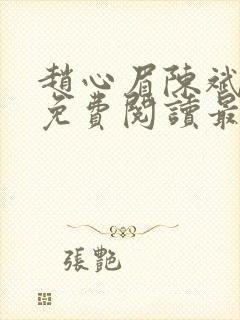 趙心眉陳斌
免費閱讀最
張艷